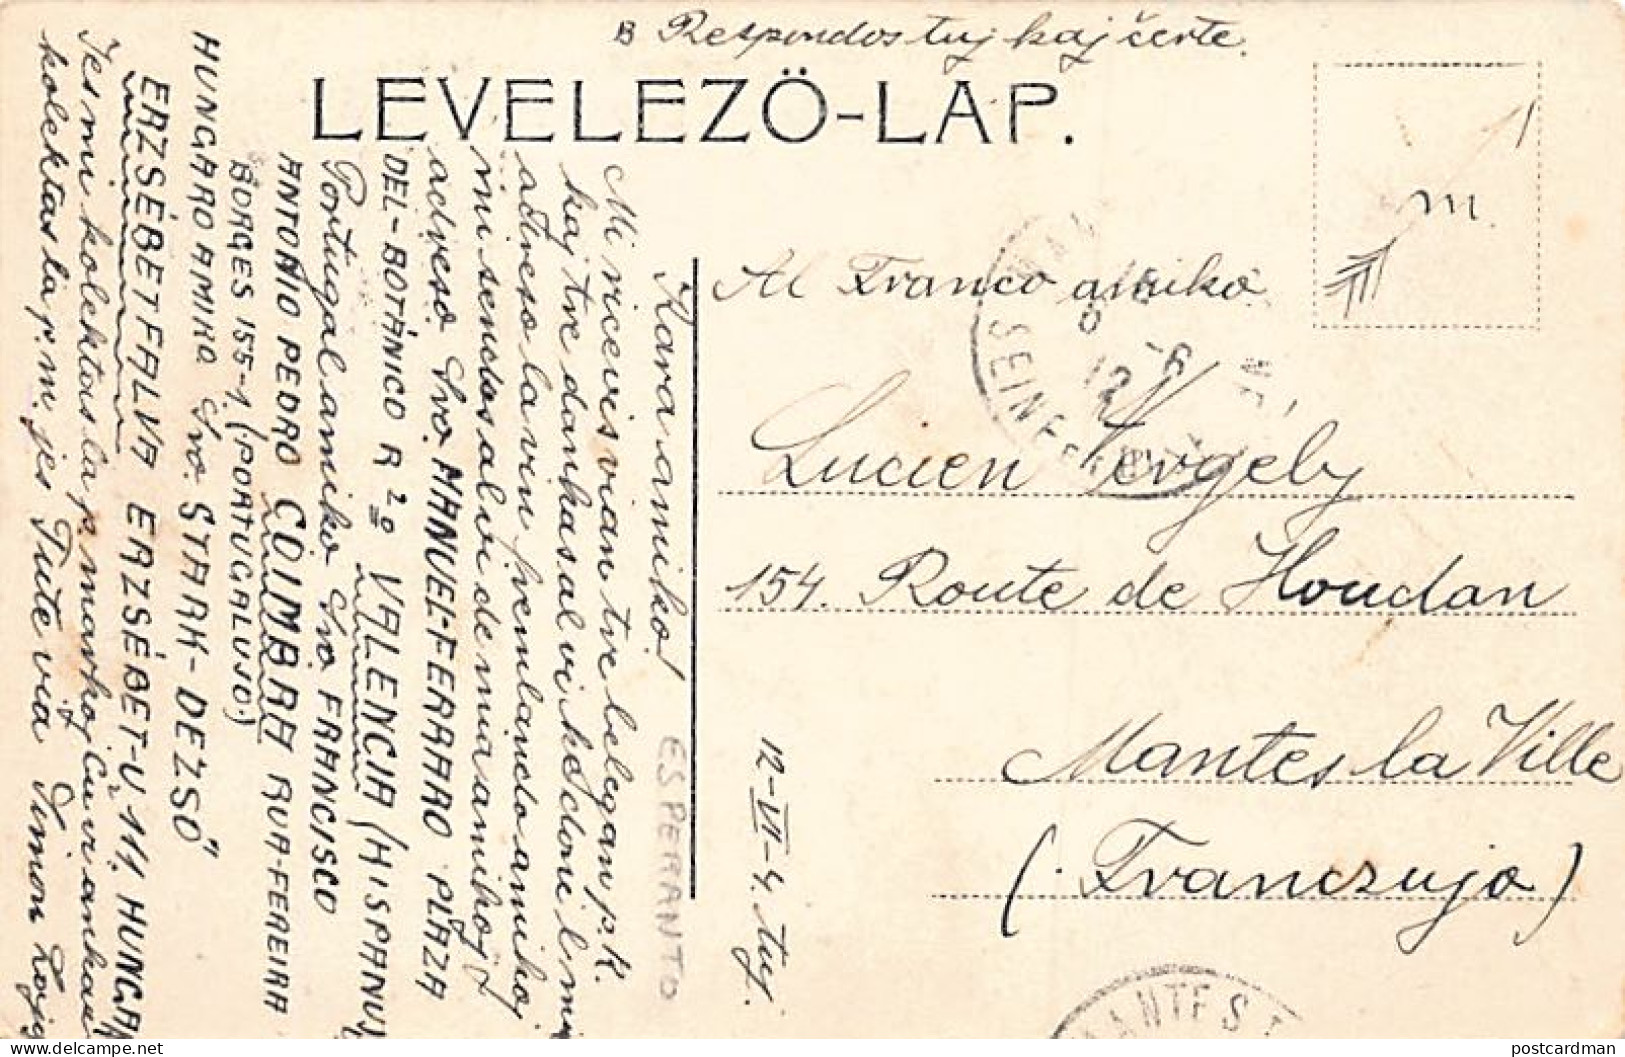 B Respondos tuj kaj certe.
LEVELEZŐ-LAP.
m.
Al Franco amiko
SEINE
12
-6
Lucien Vergely
154. Route de Houdan
Mantes la Ville
(Franczujo)
12-VI-4. tuj.
MANTES
ESPERANTO
Kara amiko!
Mi ricevis vian tre belegan p.k.
kaj tre dankas al vi ke doni el mi
adreso la vin fremlando amikoj
mi sendos al vi de mia amikoj
adreso Sro. MANUEL-FERRARO PLAZA
DEL-BOTÁNICO R 2º VALENCIA (HISPANUJ
Portugal amiko Sro FRANCISCO
ANTONIO PEDRO COIMBRA RUA-FEREIRA
BORGES 155-1. (PORTUGALUJO.)
HUNGARO AMIKO Sro. STARK-DEZSŐ
ERZSÉBETFALVA ERZSÉBET-U. 111. HUNGA
Jes mi kolektas la p. markoj ĉu vi ankaŭ
kolektas la p.m. jes Tute via Simon Lajos
postcardman